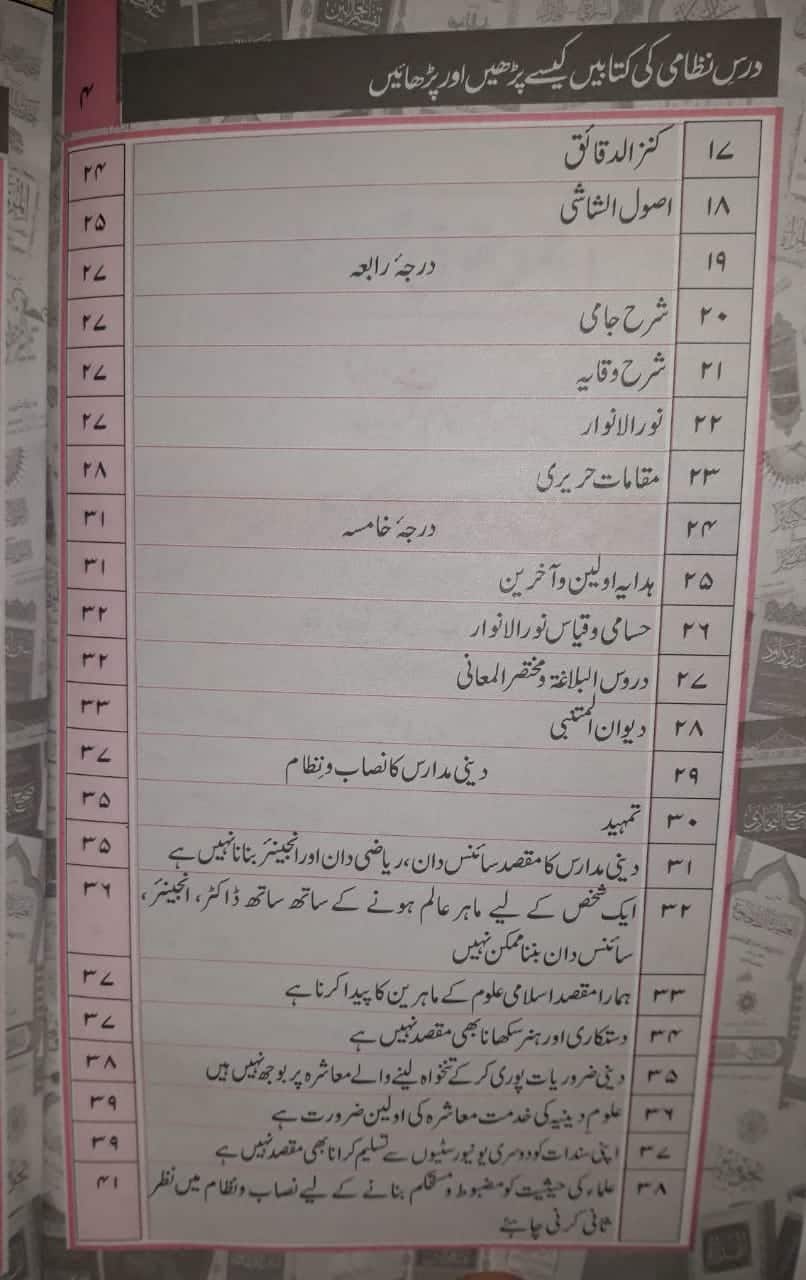 درسِ نظامی کی کتابیں کیسے پڑھیں اور پڑھائیں
۴
۱۷ کنز الدقائق ۲۴
۱۸ اصول الشاشی ۲۵
۱۹ درجۂ رابعہ ۲۷
۲۰ شرح جامی ۲۷
۲۱ شرح وقایہ ۲۷
۲۲ نور الانوار ۲۷
۲۳ مقامات حریری ۲۸
۲۴ درجۂ خامسہ ۳۱
۲۵ ہدایہ اولین و آخرین ۳۱
۲۶ حسامی و قیاس نور الانوار ۳۲
۲۷ دروس البلاغۃ و مختصر المعانی ۳۲
۲۸ دیوان المتنبی ۳۳
۲۹ دینی مدارس کا نصاب و نظام ۳۷
۳۰ تمہید ۳۵
۳۱ دینی مدارس کا مقصد سائنس دان، ریاضی دان اور انجینئر بنانا نہیں ہے ۳۵
۳۲ ایک شخص کے لیے ماہر عالم ہونے کے ساتھ ساتھ ڈاکٹر، انجینئر، ۳۶
سائنس دان بننا ممکن نہیں
۳۳ ہمارا مقصد اسلامی علوم کے ماہرین کا پیدا کرنا ہے ۳۷
۳۴ دستکاری اور ہنر سکھانا بھی مقصد نہیں ہے ۳۷
۳۵ دینی ضروریات پوری کر کے تنخواہ لینے والے معاشرہ پر بوجھ نہیں ہیں ۳۸
۳۶ علوم دینیہ کی خدمت معاشرہ کی اولین ضرورت ہے ۳۹
۳۷ اپنی سندات کو دوسری یونیورسٹیوں سے تسلیم کرانا بھی مقصد نہیں ہے ۳۹
۳۸ علماء کی حیثیت کو مضبوط و مستحکم بنانے کے لیے نصاب و نظام میں نظر ۴۱
ثانی کرنی چاہئے